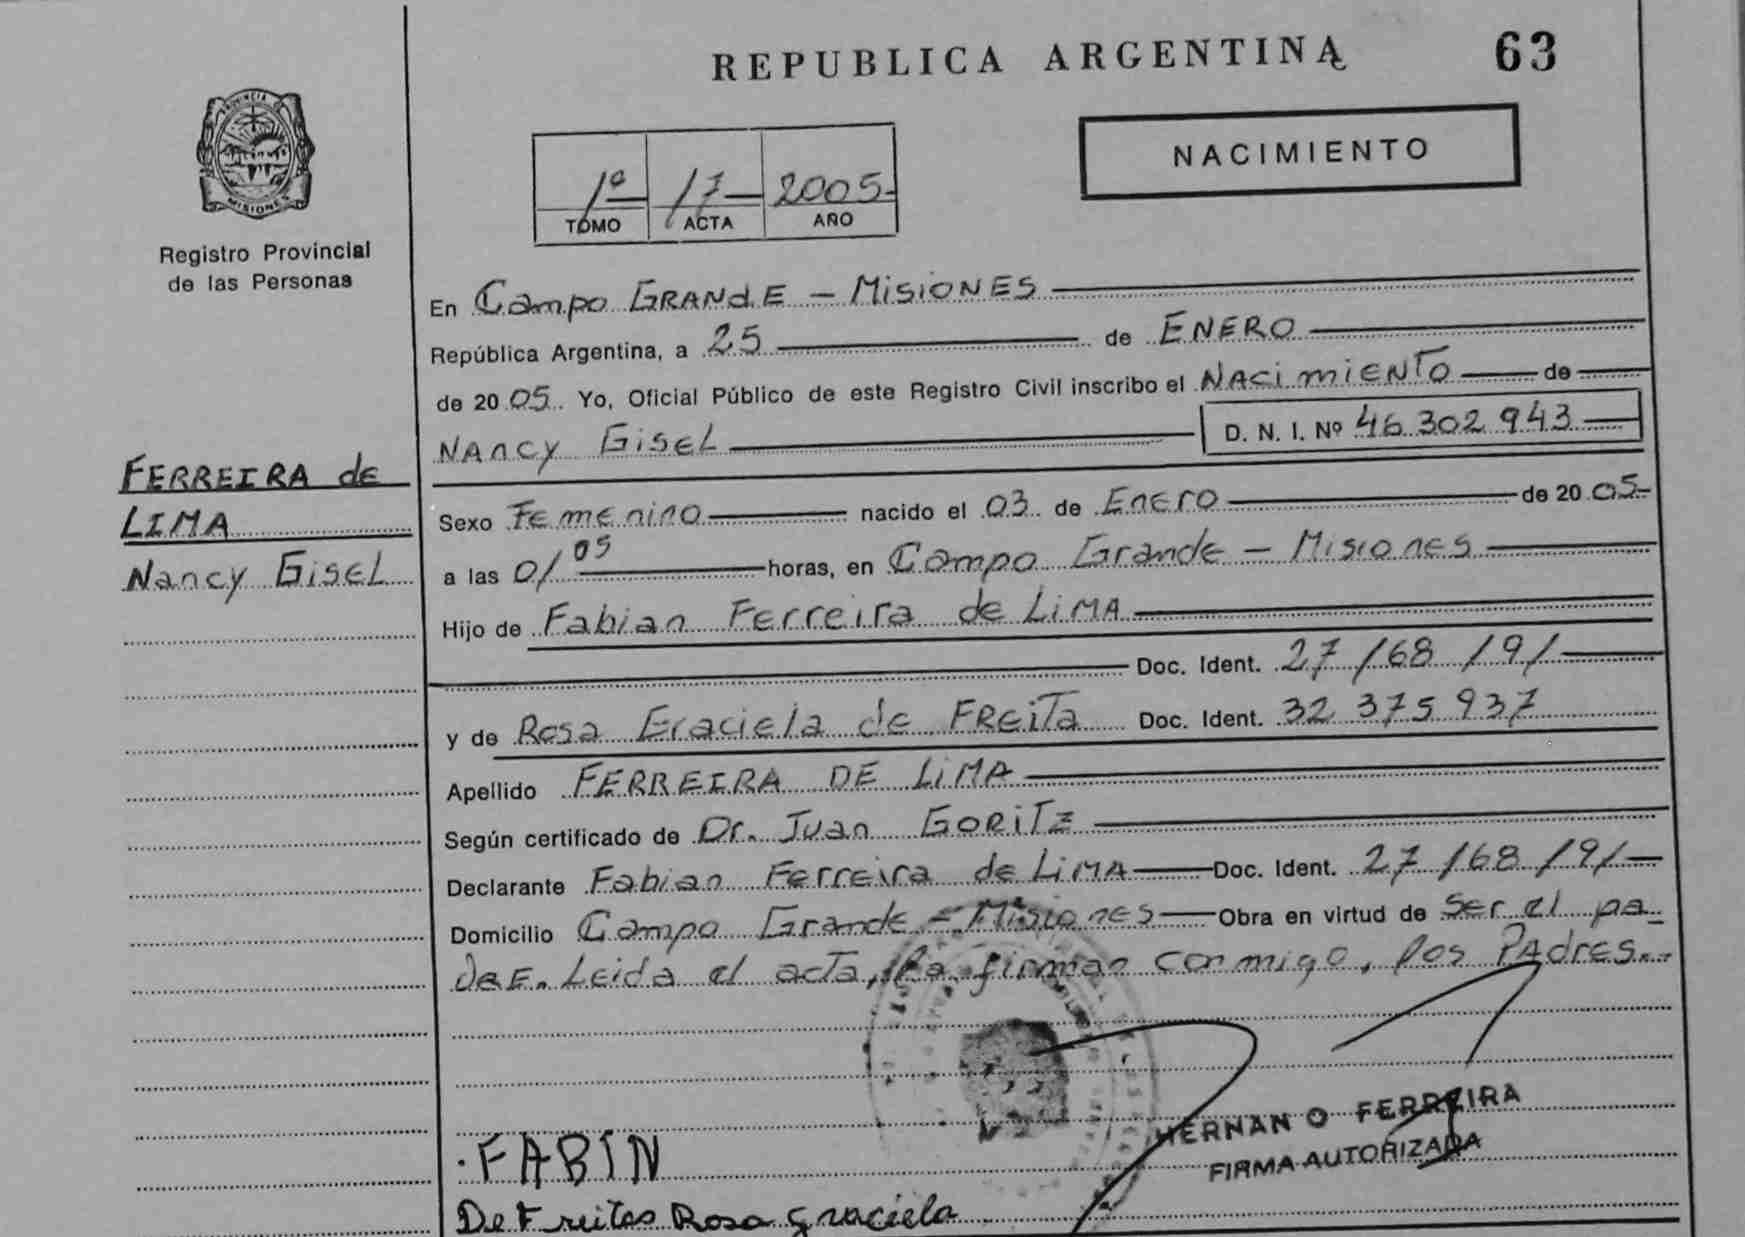 REPUBLICA ARGENTINA
63
PROVINCIA DE
MISIONES
Registro Provincial
de las Personas
1º 17 2005
TOMO ACTA AÑO
NACIMIENTO
En Campo GRANdE - MisiONES
República Argentina, a 25 de ENERO
de 20 05 Yo, Oficial Público de este Registro Civil inscribo el NACimiENTO de
NAncy GisEL D. N. I. Nº 46 302 943
FERREIRA de
LIMA
Nancy GisEL
Sexo Femenino nacido el 03 de Enero de 20 05
a las 01 05 horas, en Campo Grande - Misiones
Hijo de Fabian Ferreira de LiMA
Doc. Ident. 27 168 191
y de Rosa Graciela de FREiTa Doc. Ident. 32 375 937
Apellido FERREIRA DE LiMA
Según certificado de Dr. Juan GORiTZ
Declarante Fabian Ferreira de LiMA Doc. Ident. 27 168 191
Domicilio Campo Grande - Misiones Obra en virtud de ser el pa-
drE. Leida el acta, la firman conmigo, los PAdres.
HERNAN O FERREIRA
FIRMA AUTORIZADA
FABIN
De Freitas Rosa graciela